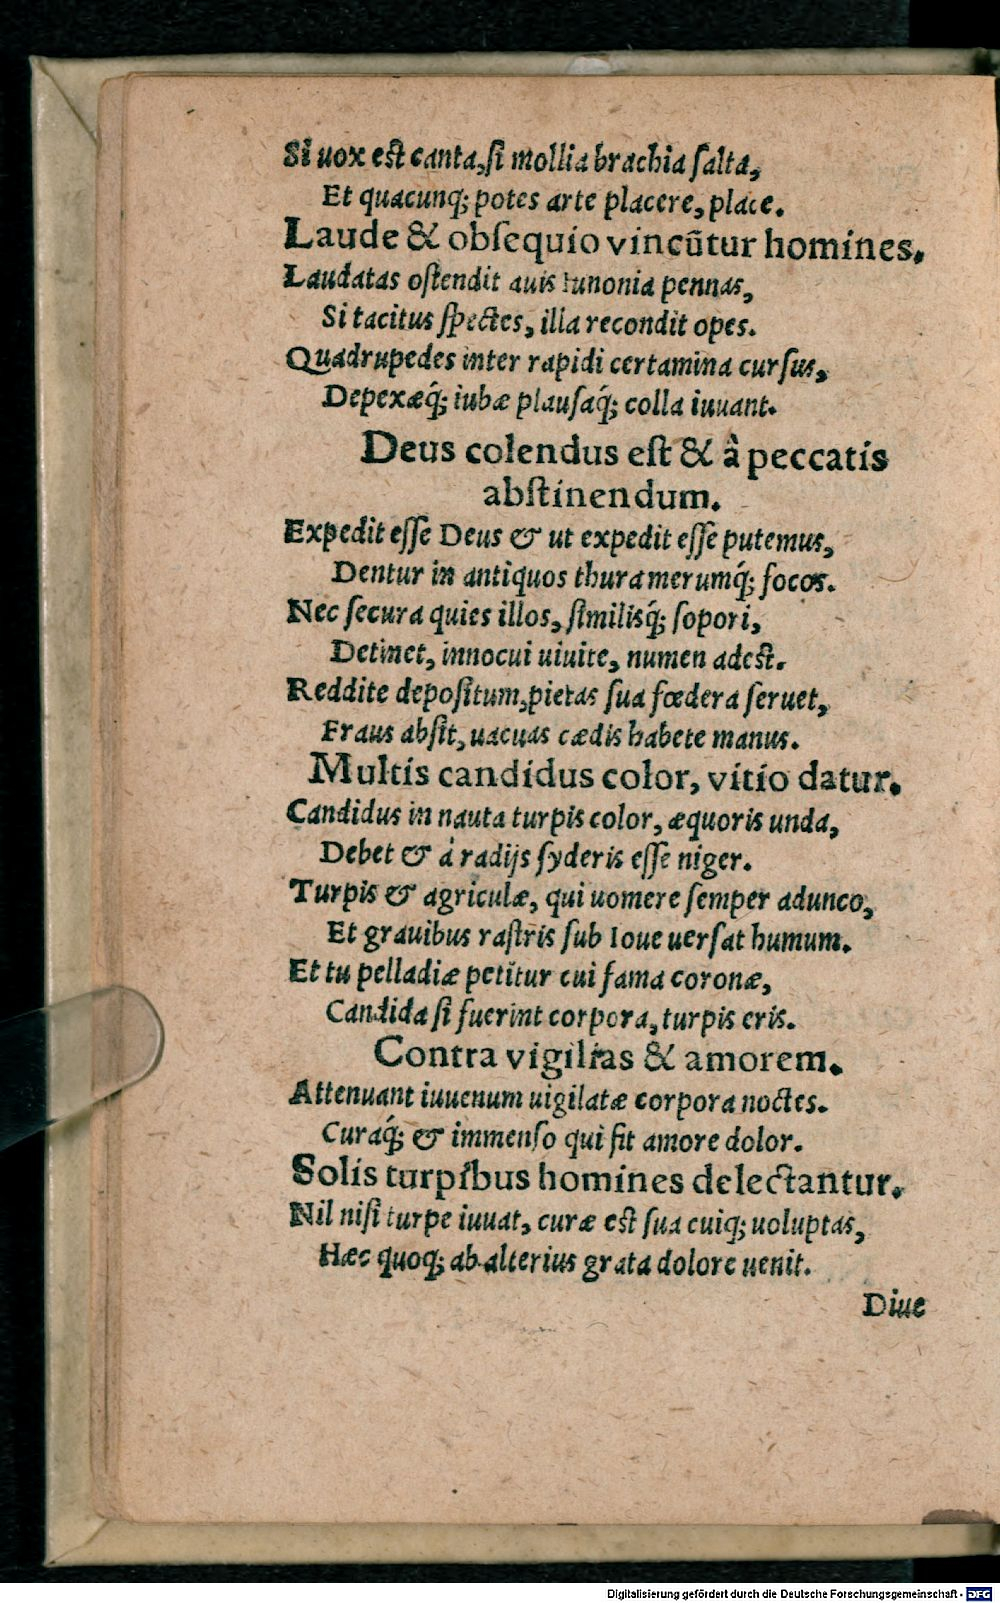 Si uox est canta, si mollia brachia salta,
Et quacunq; potes arte placere, place.
Laude & obsequio vincũtur homines.
Laudatas ostendit auis Iunonia pennas,
Si tacitus spectes, illa recondit opes.
Quadrupedes inter rapidi certamina cursus,
Depexæq́; iubæ plausaq́; colla iuuant.
Deus colendus est & à peccatis
abstinendum.
Expedit esse Deus & ut expedit esse putemus,
Dentur in antiquos thura merumq́; focos.
Nec secura quies illos, similisq́; sopori,
Detinet, innocui uiuite, numen adest.
Reddite depositum, pietas sua fœdera seruet,
Fraus absit, uacuas cædis habete manus.
Multis candidus color, vitio datur.
Candidus in nauta turpis color, æquoris unda,
Debet & à radijs syderis esse niger.
Turpis & agriculæ, qui uomere semper adunco,
Et grauibus rastris sub Ioue uersat humum.
Et tu pelladiæ petitur cui fama coronæ,
Candida si fuerint corpora, turpis eris.
Contra vigilias & amorem.
Attenuant iuuenum uigilatæ corpora noctes.
Curaq́; & immenso qui fit amore dolor.
Solis turpibus homines delectantur.
Nil nisi turpe iuuat, curæ est sua cuiq; uoluptas,
Hæc quoq; ab alterius grata dolore uenit.
Diue
Digitalisierung gefördert durch die Deutsche Forschungsgemeinschaft - DFG